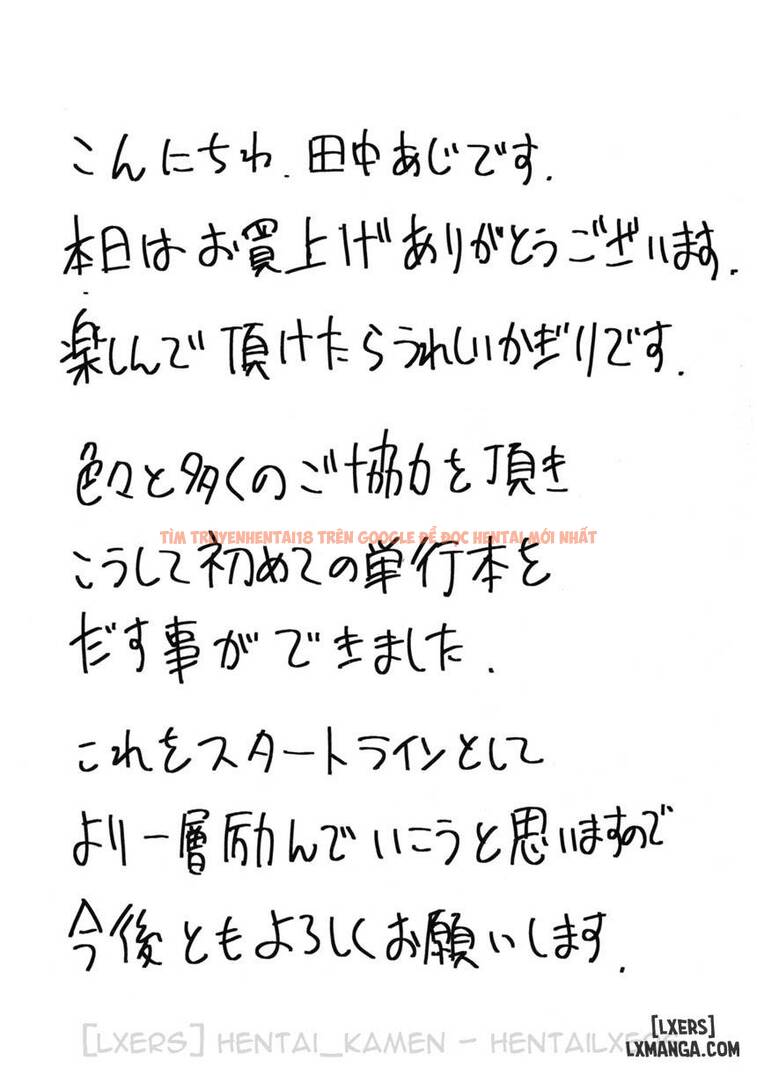 こんにちわ.田中あじです.
本日はお買上げありがとうございます.
楽しんで頂けたらうれしいかぎりです.
色々と多くのご協力を頂き
TÌM TRUYENHENTAI18 TRÊN GOOGLE ĐỂ ĐỌC HENTAI MỚI NHẤT
こうして初めての単行本を
だす事ができました.
これをスタートラインとして
より一層励んでいこうと思いますので
今後ともよろしくお願いします.
[LXERS] HENTAI_KAMEN - HENTAILXERS
[LXERS]
LXMANGA.COM